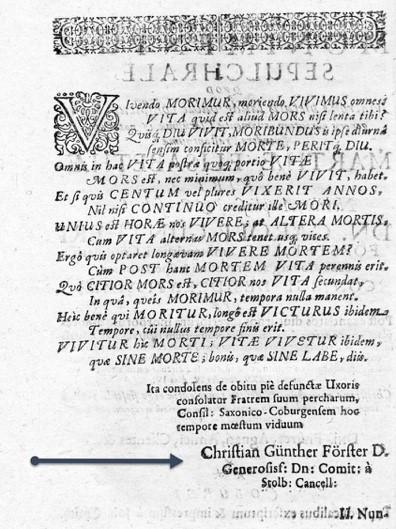 VIvendo MORIMUR, moriendo VIVIMUS omnes;
VITA quid est aliud MORS nisi lenta tibi?
Quis DIU VIVIT, MORIBUNDUS is ipse diurnâ
sensim conficitur MORTE, PERITq́; DIU.
Omnis in hac VITA postrâ quoq; portio VITÆ
MORS est, nec minimum, quò benè VIVIT, habet.
Et si quis CENTUM vel plures VIXERIT ANNOS,
Nil nisi CONTINUO creditur ille MORI.
UNIUS est HORÆ nos VIVERE; at ALTERA MORTIS.
Cum VITA alternas MORS tenet usq; vices.
Ergò quis optaret longævam VIVERE MORTEM?
Cùm POST hanc MORTEM VITA perennis erit.
Quò CITIOR MORS est, CITIOR nos VITA secundat,
In quâ, queis MORIMUR, tempora nulla manent.
Hîc benè qui MORITUR, longò est VICTURUS ibidem
Tempore, cui nullus tempore finis erit.
VIVITUR hîc MORTI; VITÆ VIVETUR ibidem,
quæ SINE MORTE; bonis, quæ SINE LABE, diis.
Ita condolens de obitu piè defunctæ Uxoris
consolatur Fratrem suum percharum,
Consil: Saxonico-Coburgensem hoc
tempore mœstum viduum
Christian Günther Förster D.
Generosiss: Dn: Comit: à
Stolb: Cancell:
II. Nun-